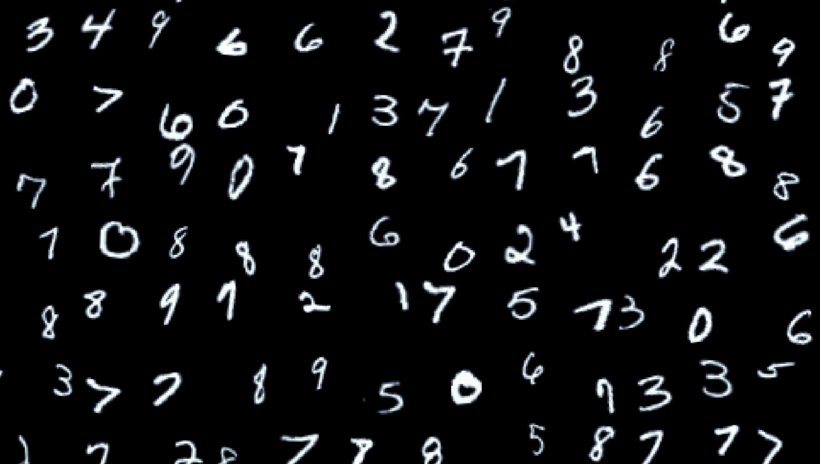 3 4 9 6 6 2 7 9 8 8 6 9
0 7 6 0 1 3 7 1 3 6 5 7
7 7 9 0 7 8 6 7 7 6 8 8
7 0 8 8 8 6 0 2 4 2 2 6
8 8 9 7 2 1 7 5 7 3 0 6
3 7 7 8 9 5 0 6 7 3 3 5
2 8 7 7 8 5 8 7 7 7